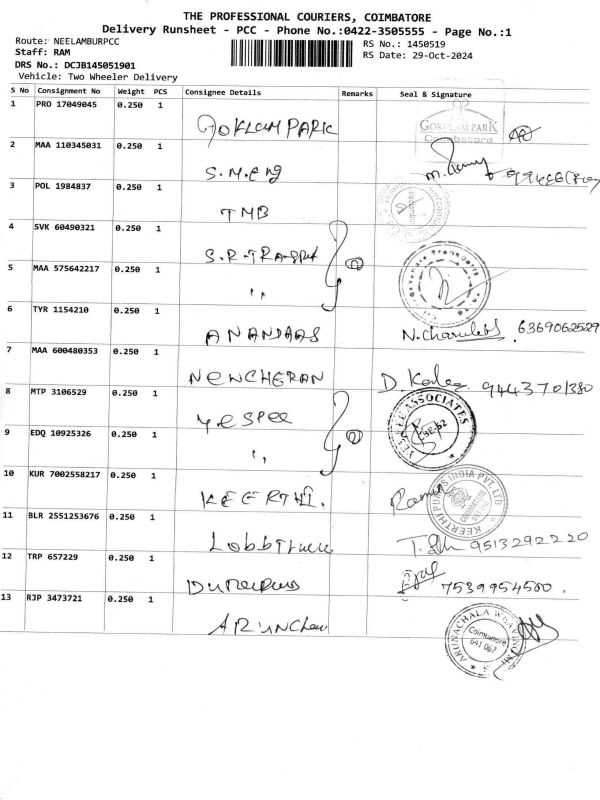 THE PROFESSIONAL COURIERS, COIMBATORE
Delivery Runsheet - PCC - Phone No.:0422-3505555 - Page No.:1
Route: NEELAMBURPCC
Staff: RAM
DRS No.: DCJB145051901
Vehicle: Two Wheeler Delivery
RS No.: 1450519
RS Date: 29-Oct-2024
S No Consignment No Weight PCS Consignee Details Remarks Seal & Signature
1 PRO 17049045 0.250 1 GOKLAM PARK GOKULAM PARK Coimbatore
2 MAA 110345031 0.250 1 S.M.Eng
3 POL 1984837 0.250 1 TMB
4 SVK 60490321 0.250 1 2
5 MAA 575642217 0.250 1 ,,
6 TYR 1154210 0.250 1 ANANDAAS 6369062529
7 MAA 600480353 0.250 1 NEWCHERAN D. 9443701380
8 MTP 3106529 0.250 1 YESPEE 2 ASSOCIATES
9 EDQ 10925326 0.250 1 ,,
10 KUR 7002558217 0.250 1 KEERTHI. INDIA PVT LTD
11 BLR 2551253676 0.250 1 9513292220
12 TRP 657229 0.250 1 7539954500.
13 RJP 3473721 0.250 1 ARUNCHAL ARUNACHALA Coimbatore 641 062